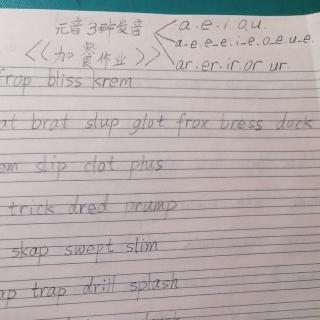 元音3种发音 a.e.i.o.u.
a-e e-e i-e o-e u-e
《加餐作业》 ar. er. ir. or ur
frop bliss krem
brat slup glot frox bress duck
slip clot plus
trick dred prump
skap swept slim
trap drill splash